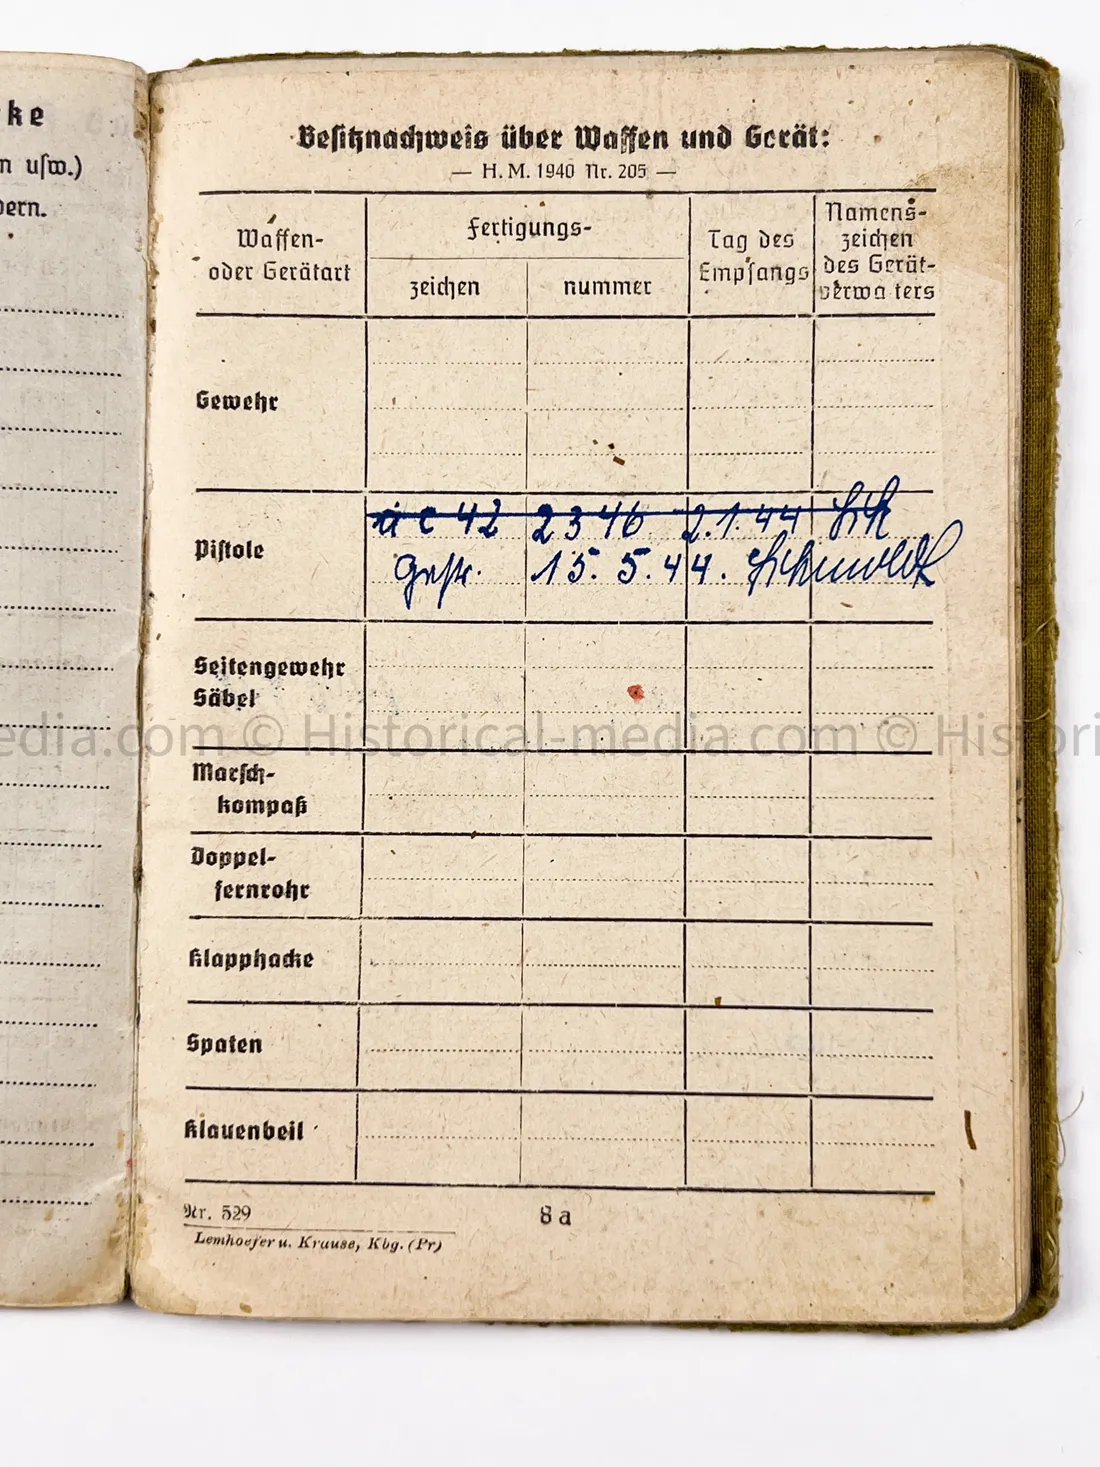 ke
n usw.)
dern.
Besitznachweis über Waffen und Gerät:
— H. M. 1940 Nr. 205 —
Waffen-
oder Gerätart
Fertigungs-
zeichen
nummer
Tag des
Empfangs
Namens-
zeichen
des Gerät-
verwalters
Gewehr
Pistole
ac 42 2346 2.1.44
gestr. 15. 5. 44.
Seitengewehr
Säbel
Marsch-
kompaß
Doppel-
fernrohr
Klapphacke
Spaten
Klauenbeil
Nr. 529
8a
Lemhoefer u. Krause, Kbg. (Pr)
edia.com © Historical-media.com © Histori